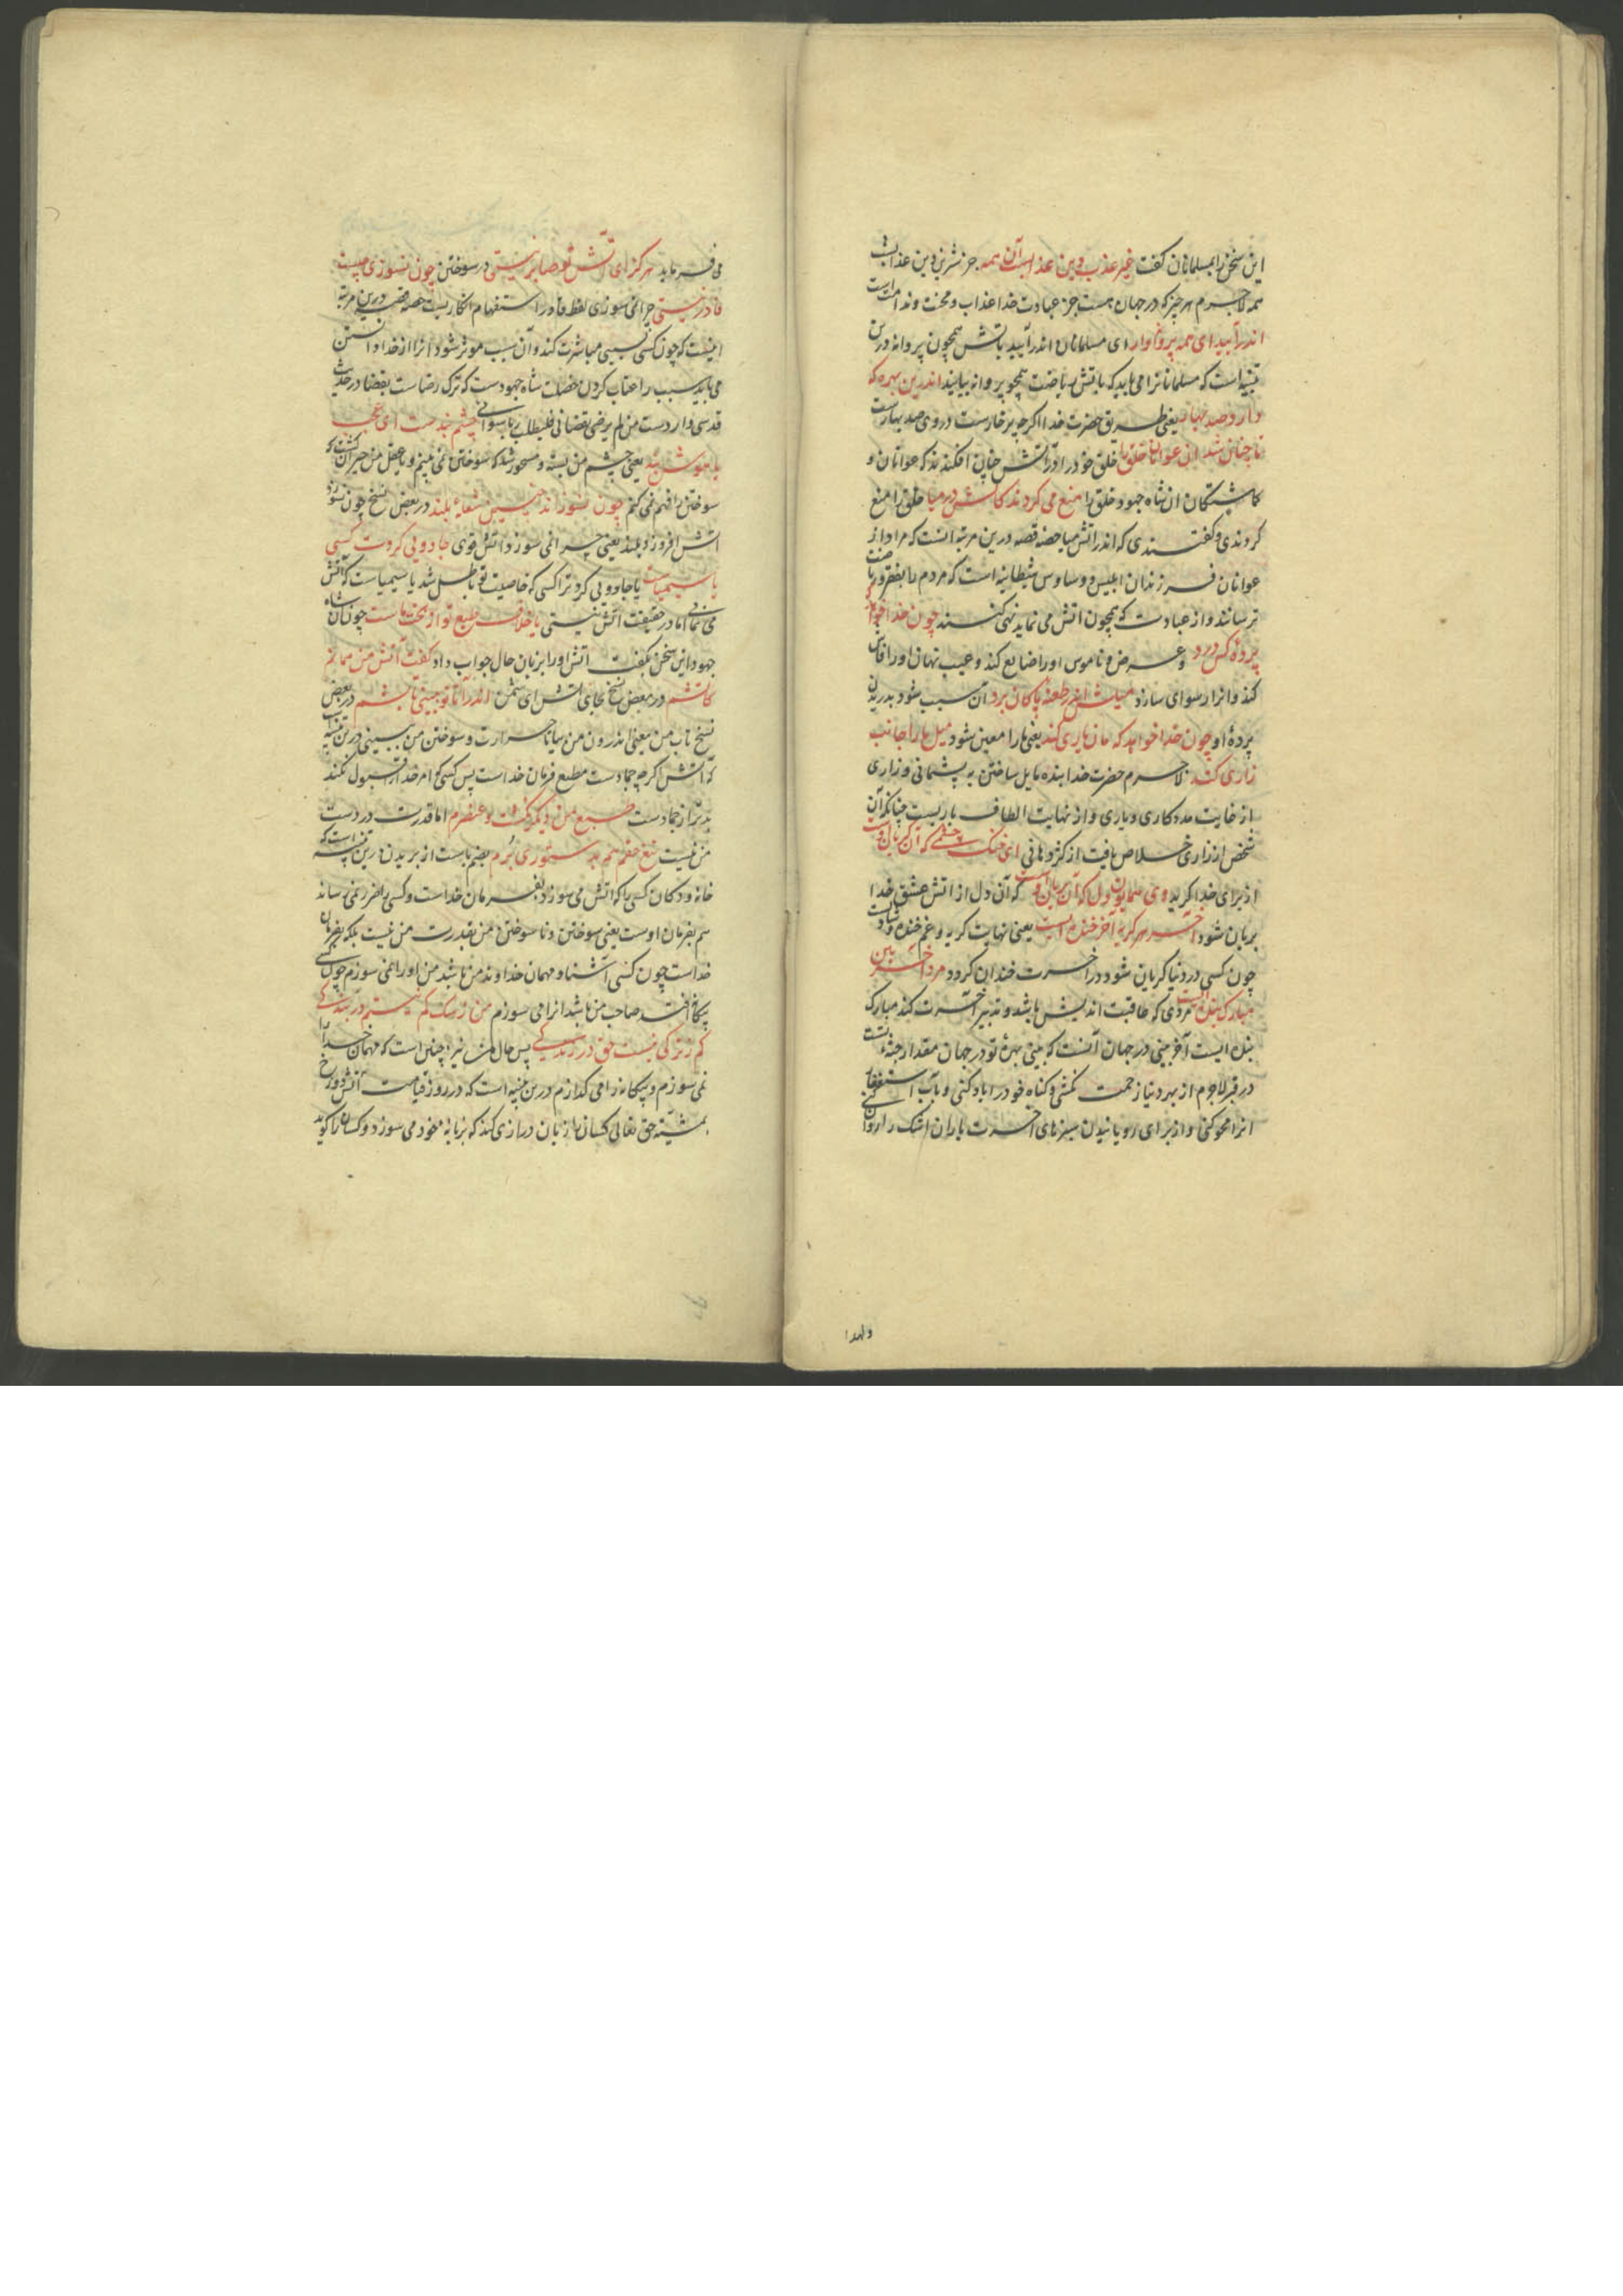 این سخن را بمسلمانان گفت غیر عذب دین عذابست آن همه جز شیرین دین عذابست
همه لاجرم هر چیز که در جهان هست جز عبادت خدا عذاب و محنت و ندامت است
اندر آیید ای همه پروانه‌وار ای مسلمانان اندر آیید بآتش همچون پروانه درین
تنبیه است که مسلمانانرا می باید که بآتش ریاضت همچو پروانه بیایند اندرین بهره که
دارد صد بهار یعنی طریق حضرت خدا اگرچه پر خارست در وی صد بهارست
تا چنان شد ان عوانان خلق را خلق خود را در آتش چنان افکندند که عوانان و
کماشتکان ان شاه جهود خلق را منع می کردند کاتش در میا خلق را منع
کردندی و گفتندی که اندر آتش میا حصه قصه درین مرتبه انست که مراد از
عوانان فرزندان ابلیس و وساوس شیطانیه است که مردم را بفقر و ریاضت
ترسانند و از عبادت که همچون اتش می نماید نهی کنند چون خدا خواهد که
پرده کس درد و عرض و ناموس او را ضایع کند و عیب نهان او را فاش
کند و انرا رسوای سازد میلش اندر طعنه پاکان برد ان سبب شود بدریدن
پرده او چون خدا خواهد که مان یاری کند یعنی ما را معین شود میل ما را جانب
زاری کند لاجرم حضرت خدا بنده مایل ساختن به پشمانی و زاری
از غایت مددکاری و یاری و از نهایت الطاف باریست چنانکه آن
شخص از زاری خلاص یافت از کژ دهانی ای خنک چشمی که آن گریان اوست
از برای خدا گرید وی همایون دل که آن بریان اوست که آن دل از اتش عشق خدا
بریان شود آخر هر گریه آخر خنده ایست یعنی نهایت گریه و غم خنده و شادیست
چون کسی در دنیا گریان شود در آخرت خندان گردد مرد آخر بین
مبارک بنده ایست مردی که عاقبت اندیش باشد و تدبیر آخرت کند مبارک
بنده ایست آخر بینی در جهان آنست که بینی بهره تو در جهان مقدار جثه تست
در قبر لاجرم از بهر دنیا زحمت نکشی و کناه خود را باد کنی و بآب استغفار
انرا محو کنی و از برای رویانیدن سبزهای آخرت باران اشک را روان کنی
ولهذا
می فرماید هرگز ای آتش تو صابر نیستی در سوختن چون نسوزی چیست
قادر نیستی چرا نمی سوزی لفظ قادر استفهام انکاریست حصه قصه درین مرتبه
اینست که چون کسی بسببی مباشرت کند و آن سبب موثر نشود انرا از خدا دانستن
می باید سبب را عتاب کردن خصلت شاه جهودست که ترک رضاست بقضا در حدیث
قدسی واردست من لم یرض بقضائی فلیطلب ربا سوائی چشم بندست ای عجب
یا هوش بند یعنی چشم من بسته و مسحور شد که سوختن نمی بینم و یا عقل من حیران گشت که
سوختن را فهم نمی کنم چون نسوزاند چنین شعله بلند در بعض نسخ چون نسوزد
آتش افروز و بلند یعنی چرا نمی سوزد اتش قوی جادویی کردت کسی
یا سیمیاست یا جادویی کرد ترا کسی که خاصیت تو باطل شد یا سیمیاست که آتش
می نمایی اما در حقیقت آتش نیستی یا خلاف طبع تو از بخت ماست چون آن شاه
جهود این سخن بگفت اتش او را بزبان حال جواب داد گفت آتش من همانم
کآتشم در بعض نسخ بجای اتش ای شمن اندرآ تا تو ببینی تابشم در بعض
نسخ تاب من یعنی اندرون من بیا تا حرارت و سوختن من ببینی درین تنبیه است
که آتش اگرچه جمادست مطیع فرمان خداست پس کسی که امر خدا را قبول نکند
بدتر از جمادست طبع من دیگر نگشت و عنصرم اما قدرت در دست
من نیست تیغ حقم هم بدستوری برم بضم باست از بریدن درین تنبیه است که
خانه و دکان کسی را که اتش می سوزد بفرمان خداست و کسی را ضرر نمی رساند
هم بفرمان اوست یعنی سوختن و نا سوختن من بقدرت من نیست بلکه بفرمان
خداست چون کسی آشنا و مهمان خداوند من باشد من او را نمی سوزم چون کسی
بیگانه افتد صاحب من باشد انرا می سوزم من ز سگ کم نیستم در بندگی
کم ز ترکی نیست حق در زندگی پس حال من نیز چنین است که مهمان خدا را
نمی سوزم و بیگانه را می گدازم درین تنبیه است که در روز قیامت آتش دوزخ
بمشیت حق تعالی کسان را زبان درازی کند که بزبانه خود می سوزد و کسان را گوید